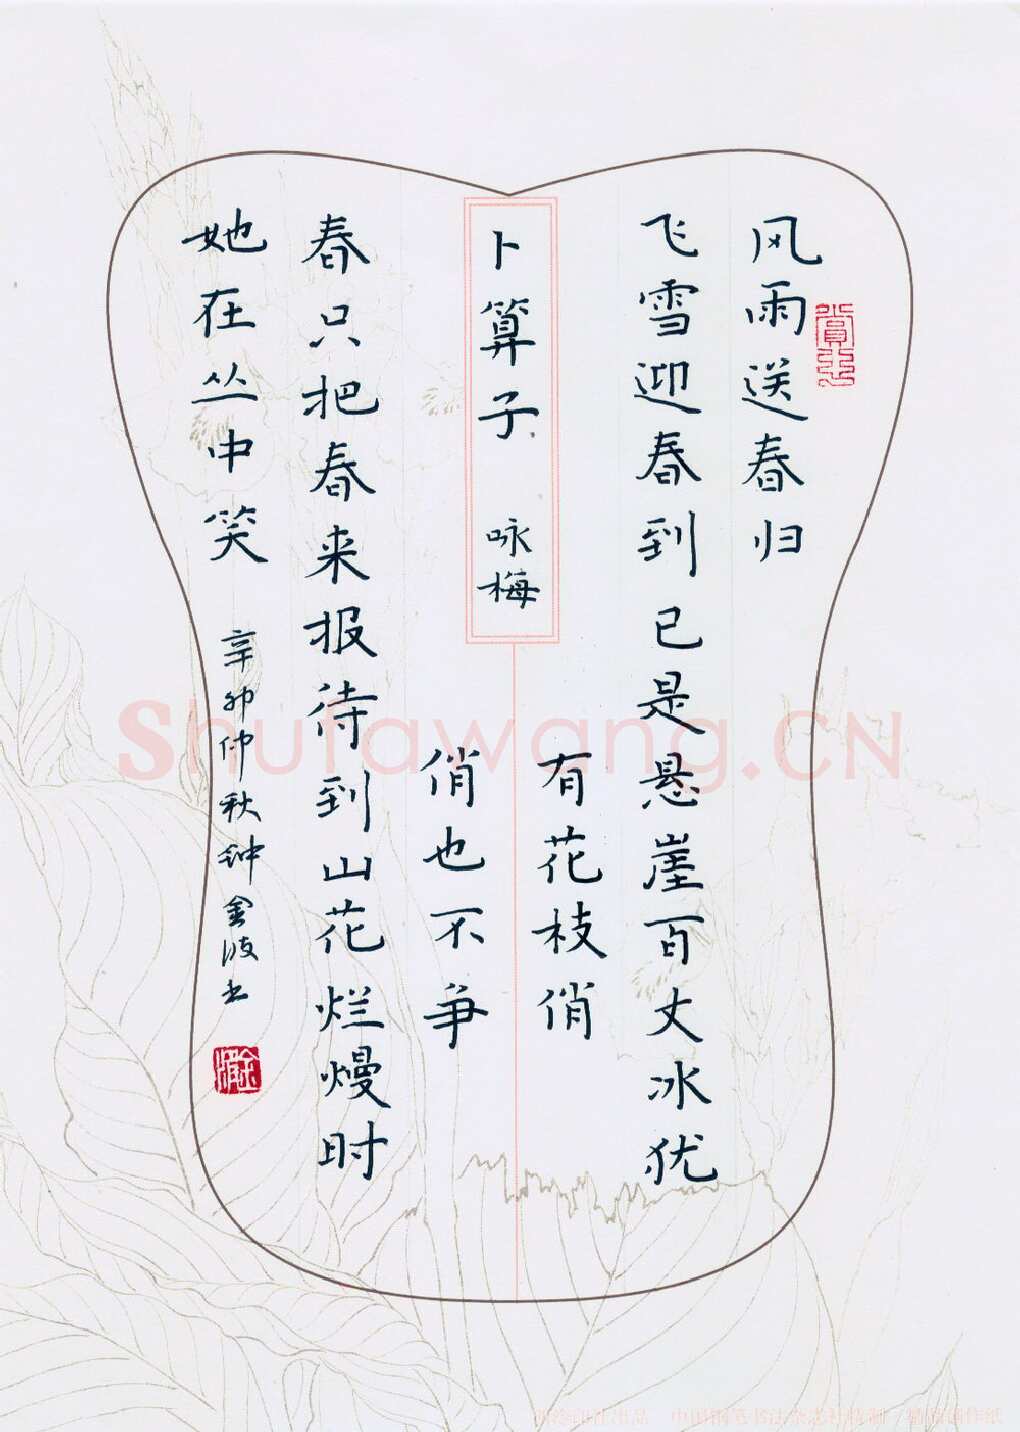 风雨送春归
飞雪迎春到已是悬崖百丈冰犹
有花枝俏
卜算子 咏梅
俏也不争
春只把春来报待到山花烂熳时
她在丛中笑
辛卯仲秋钟金波书
Shufawang.CN